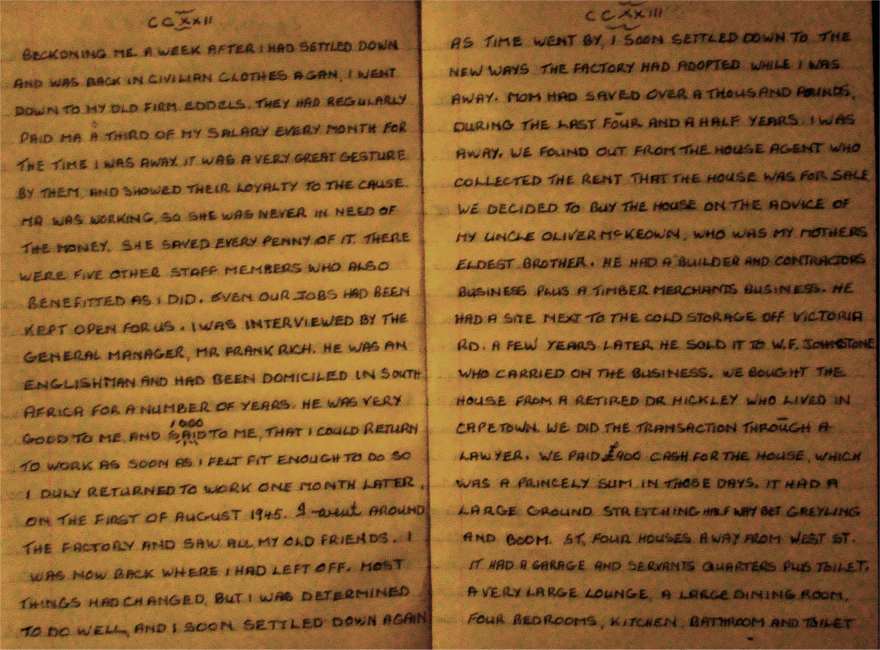 CCXXII
BECKONING ME. A WEEK AFTER I HAD SETTLED DOWN
AND WAS BACK IN CIVILIAN CLOTHES AGAN, I WENT
DOWN TO MY OLD FIRM. EDDELS. THEY HAD REGULARLY
PAID MA A THIRD OF MY SALARY EVERY MONTH FOR
THE TIME I WAS AWAY. IT WAS A VERY GREAT GESTURE
BY THEM, AND SHOWED THEIR LOYALTY TO THE CAUSE.
MA WAS WORKING, SO SHE WAS NEVER IN NEED OF
THE MONEY. SHE SAVED EVERY PENNY OF IT. THERE
WERE FIVE OTHER STAFF MEMBERS WHO ALSO
BENEFITTED AS I DID. EVEN OUR JOBS HAD BEEN
KEPT OPEN FOR US. I WAS INTERVIEWED BY THE
GENERAL MANAGER, MR FRANK RICH. HE WAS AN
ENGLISHMAN AND HAD BEEN DOMICILED IN SOUTH
AFRICA FOR A NUMBER OF YEARS. HE WAS VERY
GOOD TO ME, AND SAID TO ME, THAT I COULD RETURN
TO WORK AS SOON AS I FELT FIT ENOUGH TO DO SO
I DULY RETURNED TO WORK ONE MONTH LATER,
ON THE FIRST OF AUGUST 1945. I went AROUND
THE FACTORY AND SAW ALL MY OLD FRIENDS. I
WAS NOW BACK WHERE I HAD LEFT OFF. MOST
THINGS HAD CHANGED, BUT I WAS DETERMINED
TO DO WELL, AND I SOON SETTLED DOWN AGAIN
CCXXIII
AS TIME WENT BY, I SOON SETTLED DOWN TO THE
NEW WAYS THE FACTORY HAD ADOPTED WHILE I WAS
AWAY. MOM HAD SAVED OVER A THOUSAND POUNDS,
DURING THE LAST FOUR AND A HALF YEARS. I WAS
AWAY. WE FOUND OUT FROM THE HOUSE AGENT WHO
COLLECTED THE RENT THAT THE HOUSE WAS FOR SALE
WE DECIDED TO BUY THE HOUSE ON THE ADVICE OF
MY UNCLE OLIVER McKEOWN, WHO WAS MY MOTHERS
ELDEST BROTHER. HE HAD A BUILDER AND CONTRACTORS
BUSINESS PLUS A TIMBER MERCHANTS BUSINESS. HE
HAD A SITE NEXT TO THE COLD STORAGE OFF VICTORIA
RD. A FEW YEARS LATER HE SOLD IT TO W.F. JOHNSTONE
WHO CARRIED ON THE BUSINESS. WE BOUGHT THE
HOUSE FROM A RETIRED DR HICKLEY WHO LIVED IN
CAPETOWN. WE DID THE TRANSACTION THROUGH A
LAWYER. WE PAID £900 CASH FOR THE HOUSE, WHICH
WAS A PRINCELY SUM IN THOSE DAYS. IT HAD A
LARGE GROUND STRETCHING HALF WAY BET GREYLING
AND BOOM. ST, FOUR HOUSES AWAY FROM WEST ST.
IT HAD A GARAGE AND SERVANTS QUARTERS PLUS TOILET.
A VERY LARGE LOUNGE, A LARGE DINING ROOM,
FOUR BEDROOMS, KITCHEN, BATHROOM AND TOILET